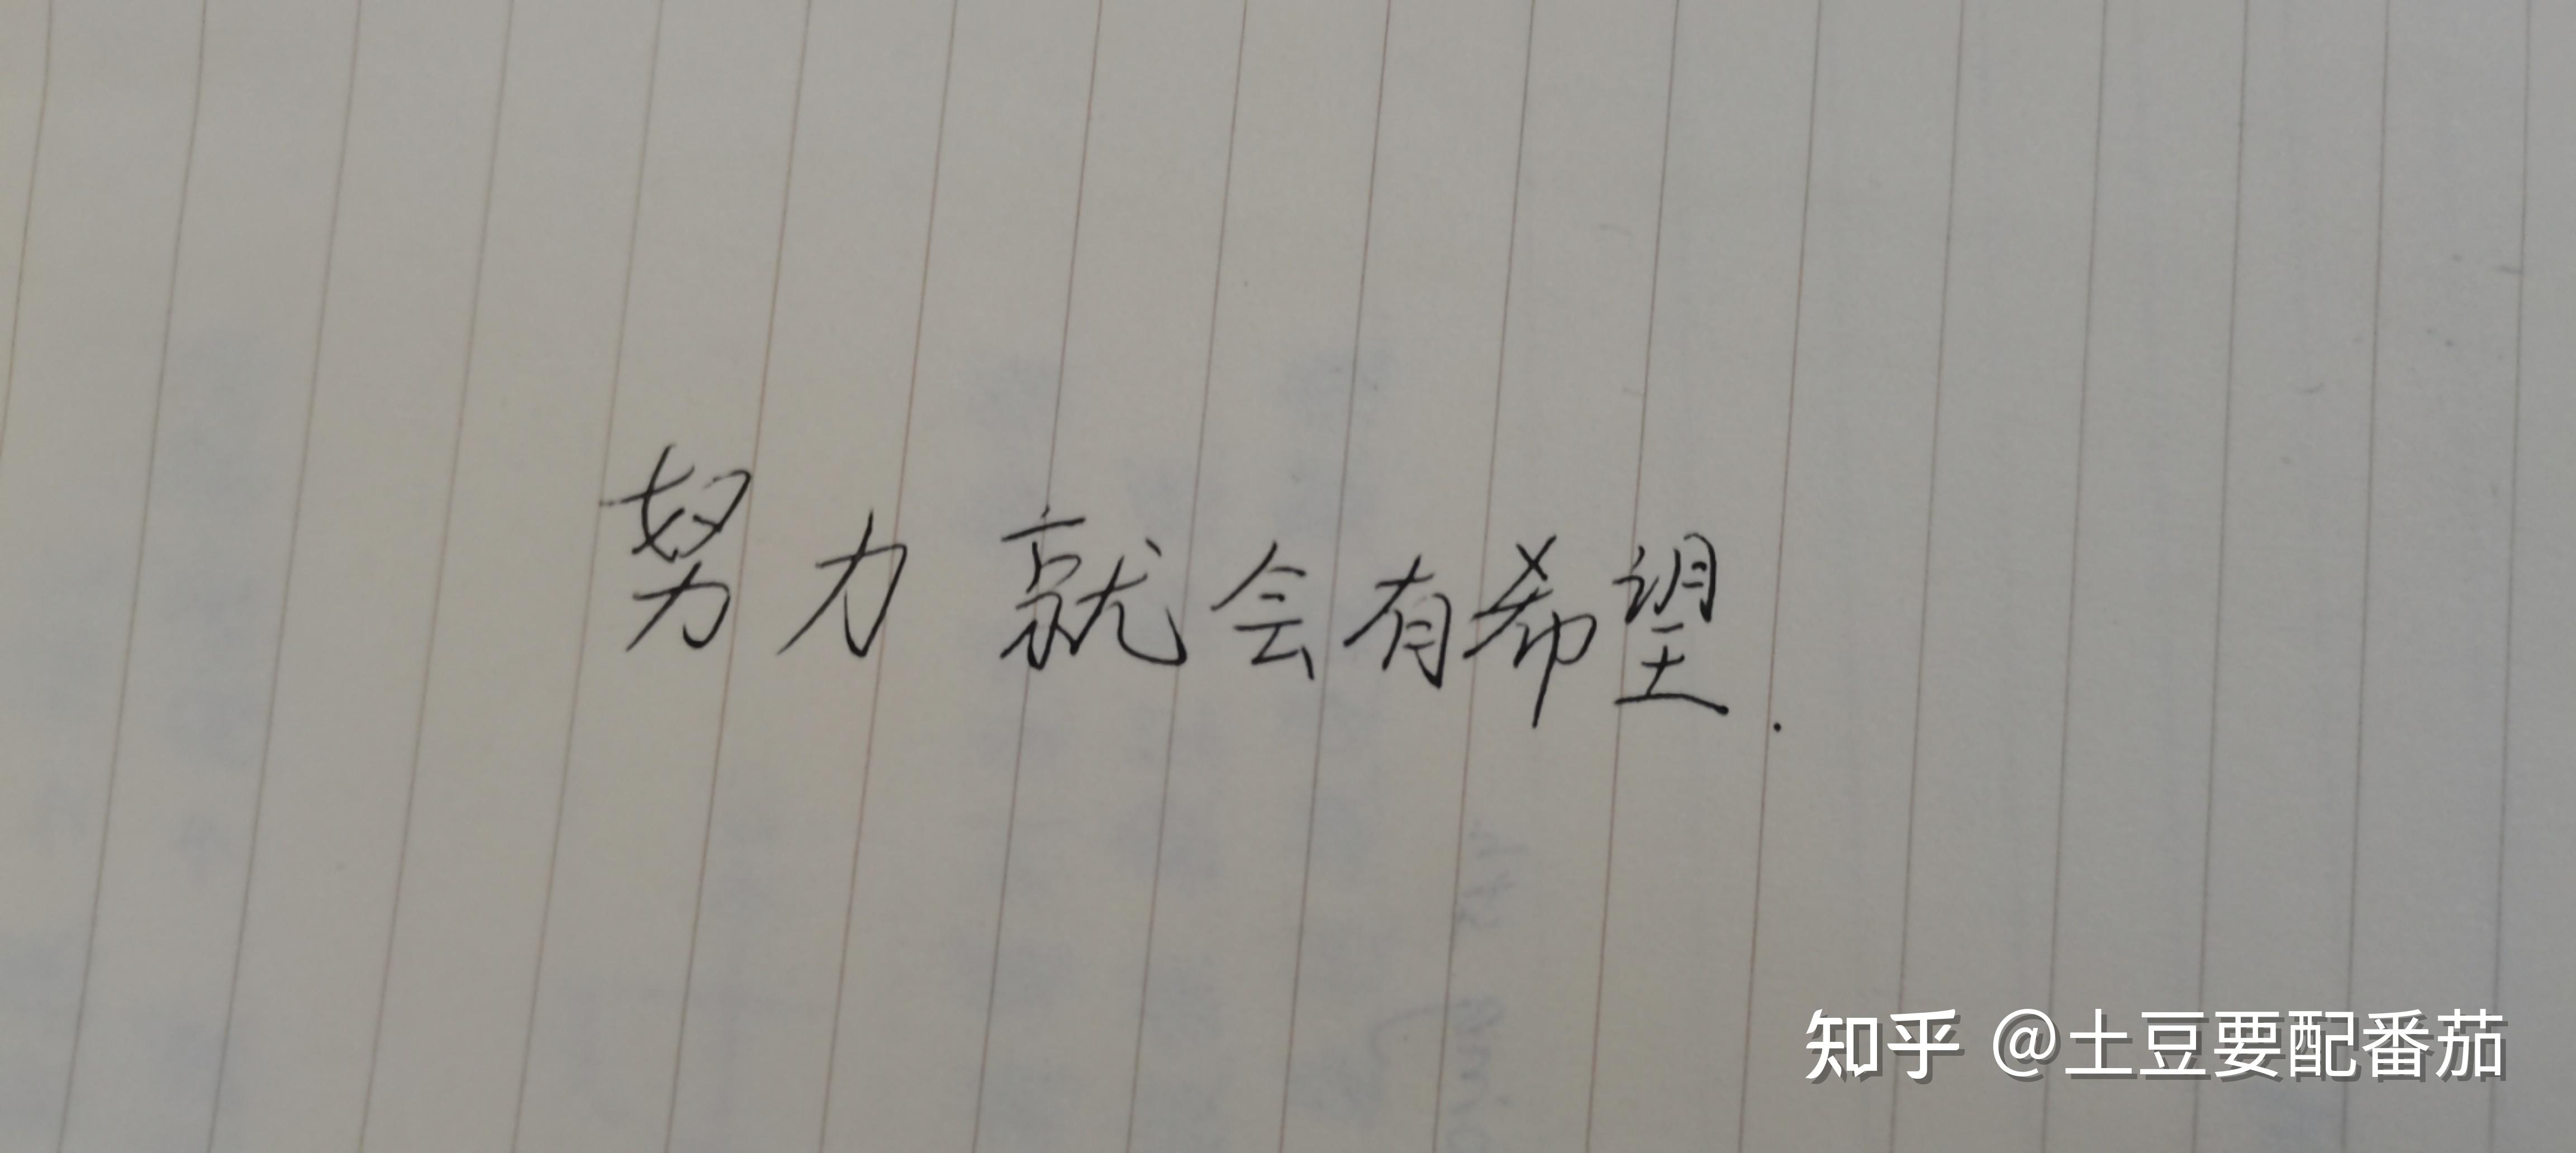 努力就会有希望.
知乎 @土豆要配番茄